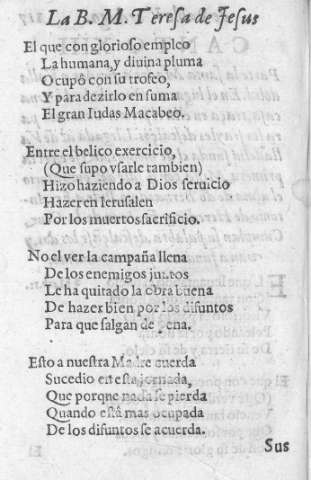 La B. M. Teresa de Jesus
El que con glorioso empleo
La humana, y diuina pluma
Ocupô con su trofeo,
Y para dezirlo en suma
El gran Iudas Macabeo.
Entre el belico exercicio,
(Que supo vsarle tambien)
Hizo haziendo a Dios seruicio
Hazer en Ierusalen
Por los muertos sacrificio.
No el ver la campaña llena
De los enemigos juntos
Le ha quitado la obra buena
De hazer bien por los difuntos
Para que salgan de pena.
Esto a nuestra Madre cuerda
Sucedio en esta jornada,
Que porque nada se pierda
Quando està mas ocupada
De los difuntos se acuerda.
Sus